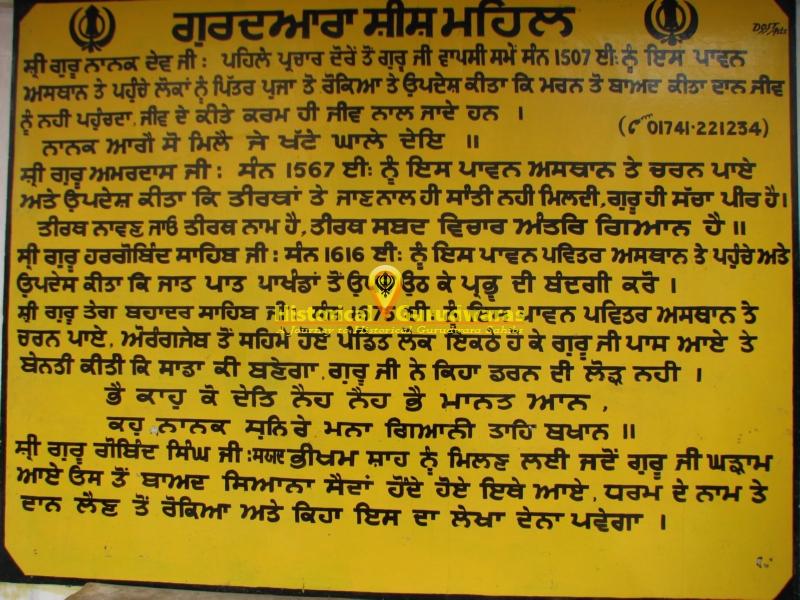 ਗੁਰਦਆਰਾ ਸ਼ੀਸ਼ ਮਹਿਲ
DOST Arts
ਸ਼੍ਰੀ ਗੁਰੂ ਨਾਨਕ ਦੇਵ ਜੀ : ਪਹਿਲੇ ਪ੍ਰਚਾਰ ਦੌਰੇ ਤੋਂ ਗੁਰੂ ਜੀ ਵਾਪਸੀ ਸਮੇਂ ਸੰਨ 1507 ਈ: ਨੂੰ ਇਸ ਪਾਵਨ
ਅਸਥਾਨ ਤੇ ਪਹੁੰਚੇ ਲੋਕਾਂ ਨੂੰ ਪਿੱਤਰ ਪੁਜਾ ਤੋ ਰੋਕਿਆ ਤੇ ਉਪਦੇਸ਼ ਕੀਤਾ ਕਿ ਮਰਨ ਤੋ ਬਾਅਦ ਕੀਤਾ ਦਾਨ ਜੀਵ
ਨੂੰ ਨਹੀ ਪਹੁੰਚਦਾ, ਜੀਵ ਦੇ ਕੀਤੇ ਕਰਮ ਹੀ ਜੀਵ ਨਾਲ ਜਾਦੇ ਹਨ ।
(✆ 01741-221234)
ਨਾਨਕ ਆਗੈ ਸੋ ਮਿਲੈ ਜੇ ਖੱਟੇ ਘਾਲੇ ਦੇਇ ॥
ਸ਼੍ਰੀ ਗੁਰੂ ਅਮਰਦਾਸ ਜੀ : ਸੰਨ 1567 ਈ: ਨੂੰ ਇਸ ਪਾਵਨ ਅਸਥਾਨ ਤੇ ਚਰਨ ਪਾਏ
ਅਤੇ ਉਪਦੇਸ਼ ਕੀਤਾ ਕਿ ਤੀਰਥਾਂ ਤੇ ਜਾਣ ਨਾਲ ਹੀ ਸ਼ਾਂਤੀ ਨਹੀ ਮਿਲਦੀ, ਗੁਰੂ ਹੀ ਸੱਚਾ ਪੀਰ ਹੈ।
ਤੀਰਥ ਨਾਵਣ ਜਾਓ ਤੀਰਥ ਨਾਮ ਹੈ, ਤੀਰਥ ਸਬਦ ਵਿਚਾਰ ਅੰਤਰਿ ਗਿਆਨ ਹੈ ॥
ਸ਼੍ਰੀ ਗੁਰੂ ਹਰਗੋਬਿੰਦ ਸਾਹਿਬ ਜੀ : ਸੰਨ 1616 ਈ: ਨੂੰ ਇਸ ਪਾਵਨ ਪਵਿਤਰ ਅਸਥਾਨ ਤੇ ਪਹੁੰਚੇ ਅਤੇ
ਉਪਦੇਸ ਕੀਤਾ ਕਿ ਜਾਤ ਪਾਤ ਪਾਖੰਡਾਂ ਤੋਂ ਉਠ ਕੇ ਪ੍ਰਭੂ ਦੀ ਬੰਦਗੀ ਕਰੋ ।
ਸ਼੍ਰੀ ਗੁਰੂ ਤੇਗ ਬਹਾਦਰ ਸਾਹਿਬ ਜੀ ਪਾਵਨ ਪਵਿਤਰ ਅਸਥਾਨ ਤੇ
Historical Gurudwaras
A Journey to Historical Gurudwara Sahibs
ਚਰਨ ਪਾਏ, ਔਰੰਗਜੇਬ ਤੋਂ ਸਹਿਮੇ ਹੋਏ ਪੰਡਿਤ ਲੋਕ ਇਕਠੇ ਹੋ ਕੇ ਗੁਰੂ ਜੀ ਪਾਸ ਆਏ ਤੇ
ਬੇਨਤੀ ਕੀਤੀ ਕਿ ਸਾਡਾ ਕੀ ਬਣੇਗਾ, ਗੁਰੂ ਜੀ ਨੇ ਕਿਹਾ ਡਰਨ ਦੀ ਲੋੜ ਨਹੀ ।
ਭੈ ਕਾਹੂ ਕੋ ਦੇਤਿ ਨੈਹ ਨੈਹ ਭੈ ਮਾਨਤ ਆਨ ,
ਕਹੁ ਨਾਨਕ ਸੁਨਿ ਰੇ ਮਨਾ ਗਿਆਨੀ ਤਾਹਿ ਬਖਾਨ ॥
ਸ਼੍ਰੀ ਗੁਰੂ ਗੋਬਿੰਦ ਸਿੰਘ ਜੀ : ਸਯਦ ਭੀਖਮ ਸ਼ਾਹ ਨੂੰ ਮਿਲਣ ਲਈ ਜਦੋਂ ਗੁਰੂ ਜੀ ਘੜਾਮ
ਆਏ ਓਸ ਤੋਂ ਬਾਅਦ ਸਿਆਨਾ ਸੈਦਾਂ ਹੋਂਦੇ ਹੋਏ ਇਥੇ ਆਏ, ਧਰਮ ਦੇ ਨਾਮ ਤੇ
ਦਾਨ ਲੈਣ ਤੋਂ ਰੋਕਿਆ ਅਤੇ ਕਿਹਾ ਇਸ ਦਾ ਲੇਖਾ ਦੇਨਾ ਪਵੇਗਾ ।